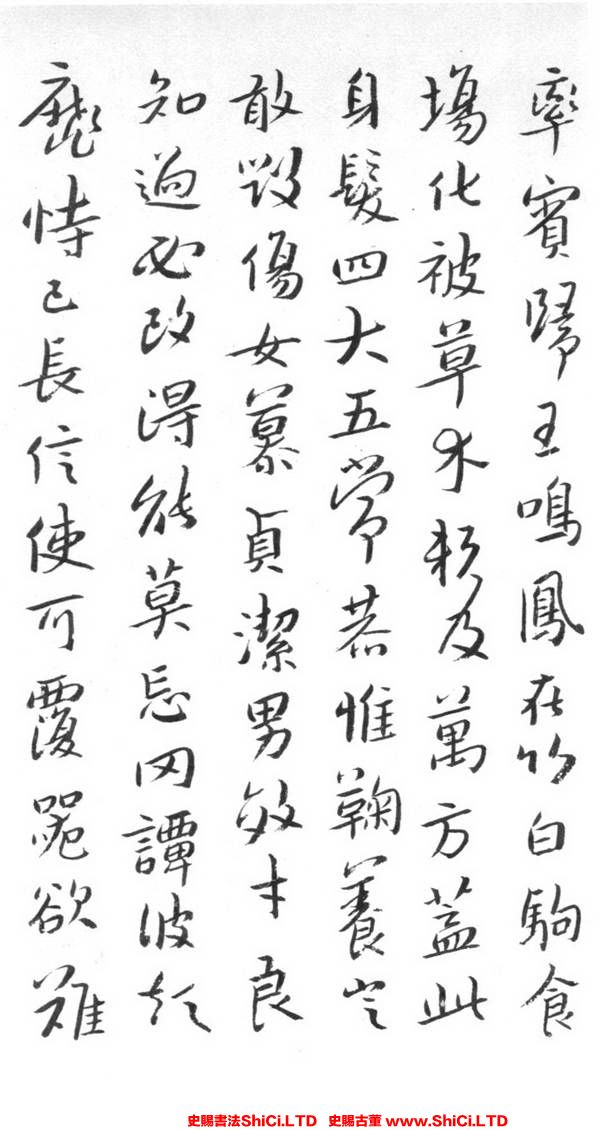 率賓歸王鳴鳳在竹白駒食
場化被草木賴及萬方蓋此
身髮四大五常恭惟鞠養豈
敢毀傷女慕貞潔男效才良
知過必改得能莫忘罔譚彼短
靡恃己長信使可覆器欲難
史賜書法ShiCi.LTD 史賜古董 www.ShiCi.LTD